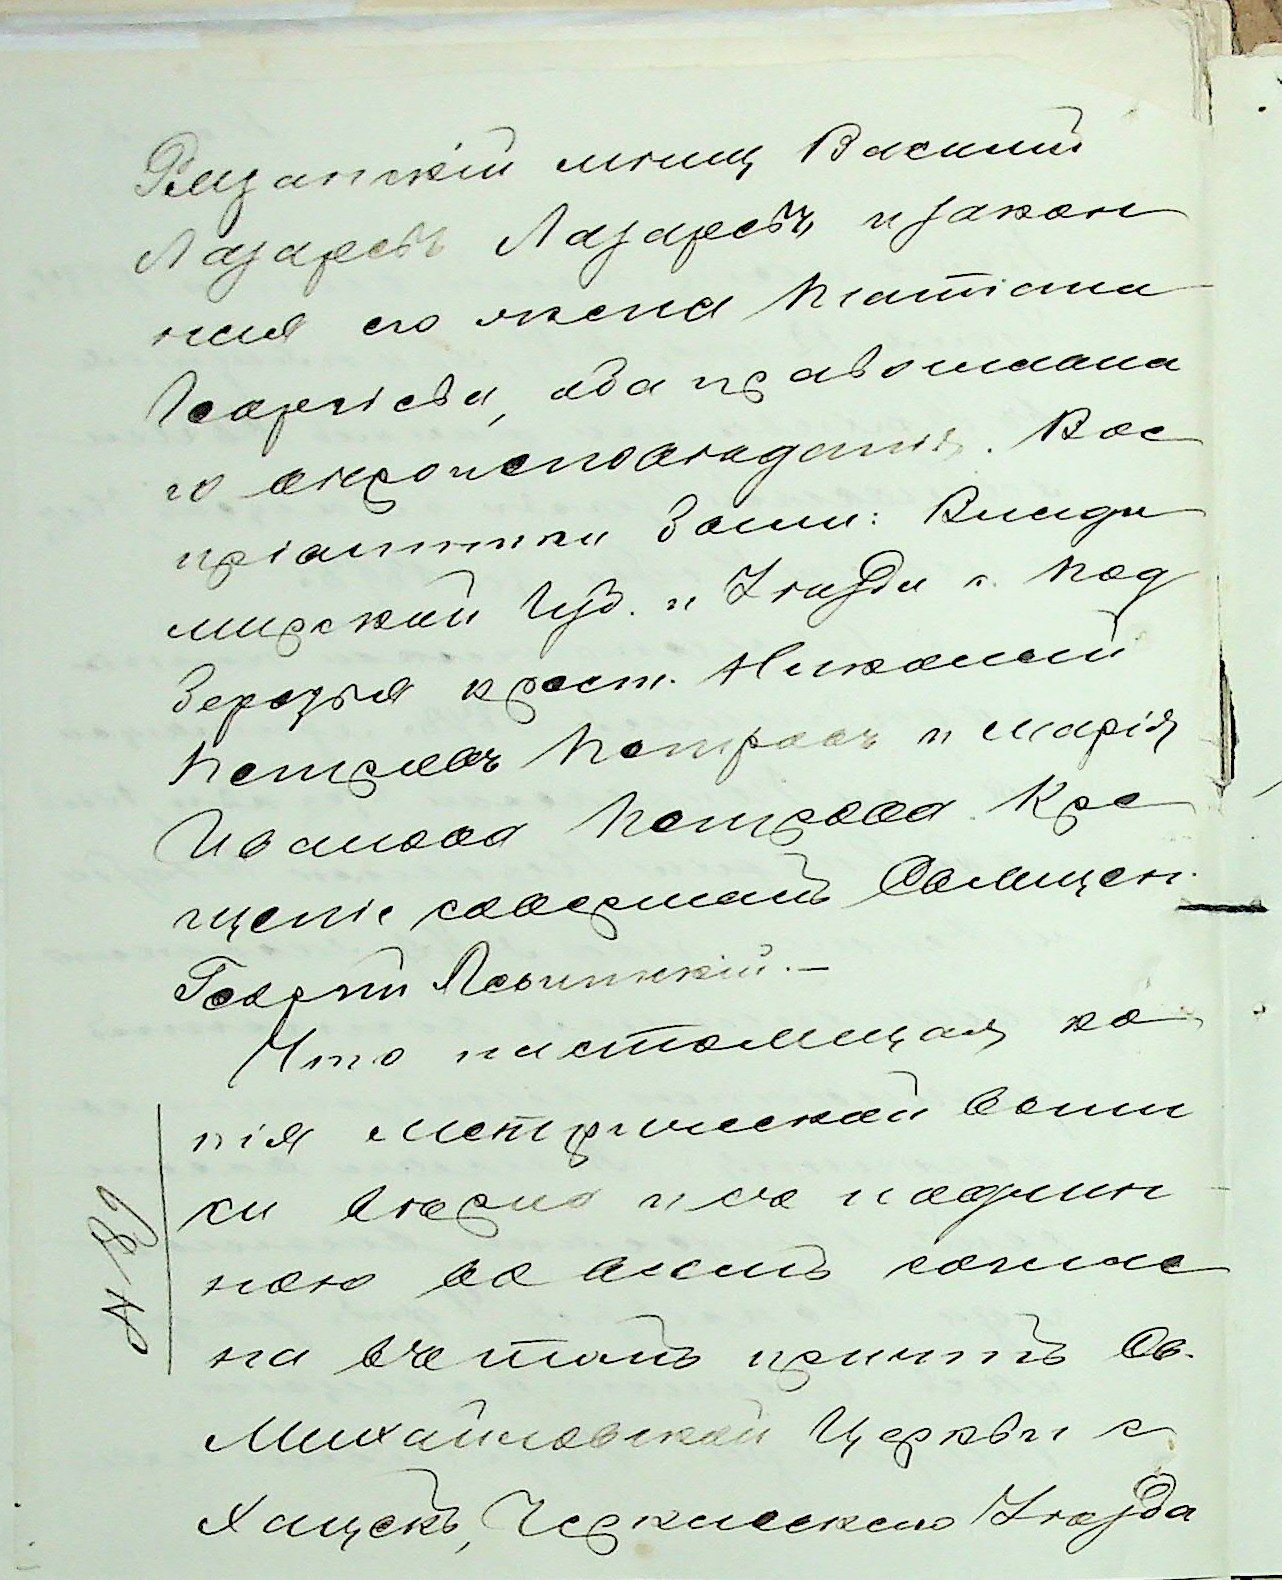 Рязанскій мѣщ Василій
Лазаревъ Лазаревъ и закон
ная его жена Татіана
Георгіева, оба православна
го вѣроисповѣданія. Вос
пріемники были: Влади
мирской Губ. и Уѣзда с. Под
березья крест. Николай
Петровъ Петровъ и Марія
Иванова Петрова. Кре
щеніе совершалъ Священ.
Георгій Левитскій.—
Что настоящая ко
пія метрической выпи
си вѣрна и съ подлин
ною во всемъ соглас
на въ томъ причтъ Св.
Михайловской Церкви с.
Хацекъ, Черкасскаго Уѣзда
№ 89